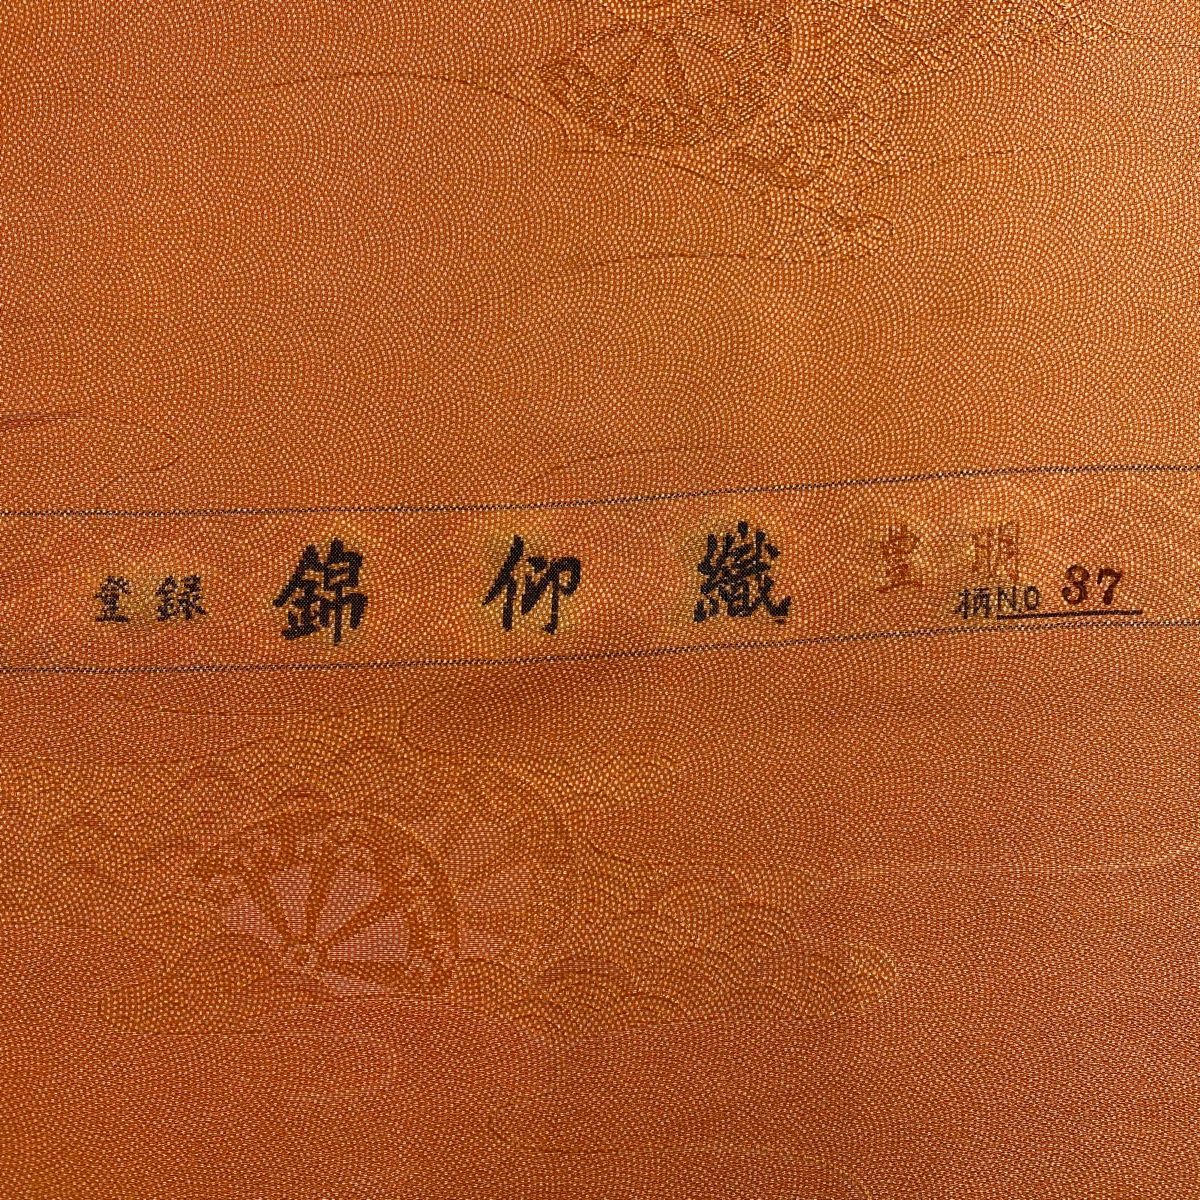 登録 錦仰織 豊明
柄NO 37